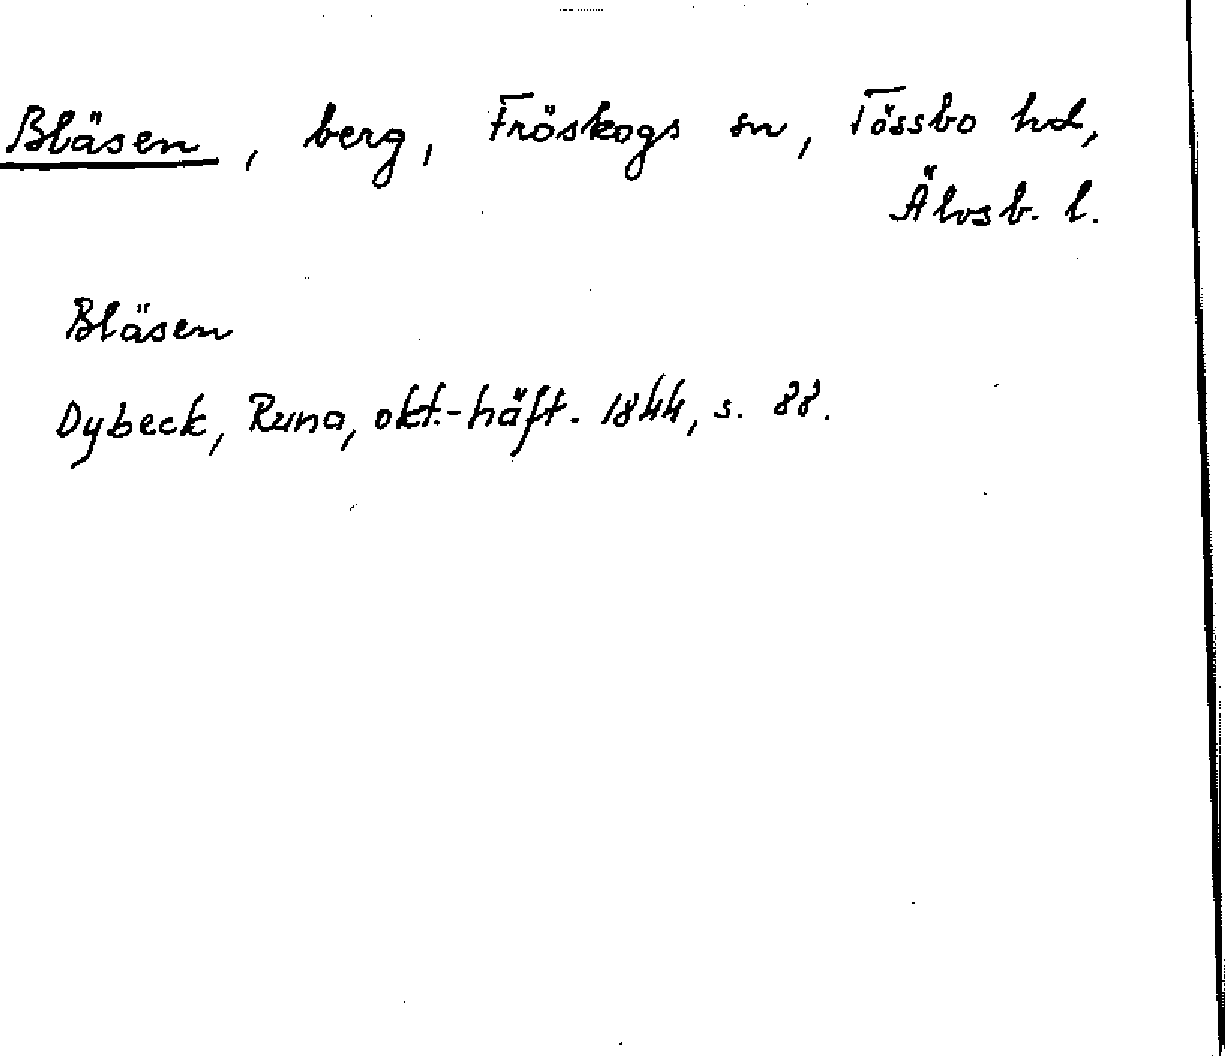 Bläsen, berg, Fröskogs sn, Tössbo hd,
Älvsb. l.
Bläsen
Dybeck, Runa, okt.-häft. 1844, s. 88.